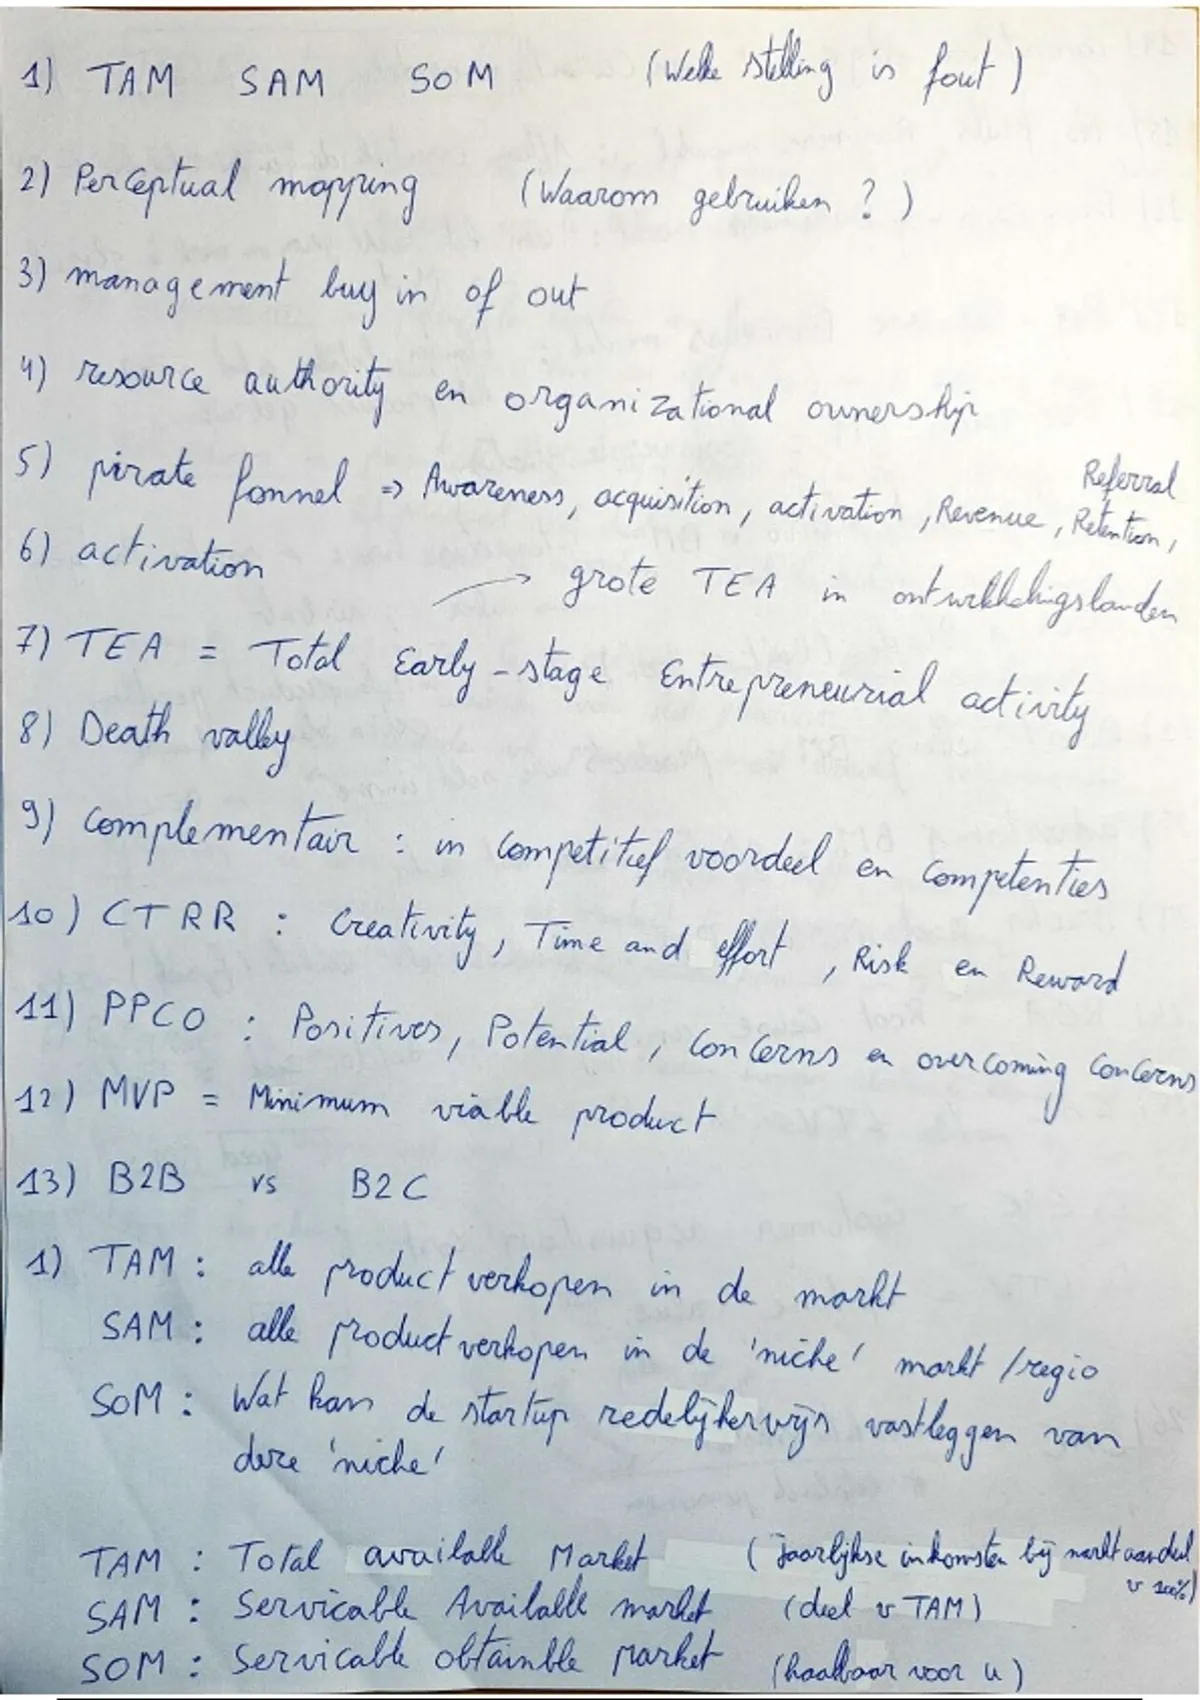 1) TAM SAM SOM (Welke stelling is fout)
2) Perceptual mapping (Waarom gebruiken?)
3) management buy in of out
4) resource authority en organizational ownership
5) pirate fonnel => Awareness, acquisition, activation, Revenue, Retention, Referral
6) activation
→ grote TEA in ontwikkelingslanden
7) TEA = Total Early-stage Entrepreneurial activity
8) Death valley
9) complementair : in competitief voordeel en competenties
10) CTRR : Creativity, Time and effort, Risk en Reward
11) PPCO : Positives, Potential, Concerns en overcoming concerns
12) MVP = Minimum viable product
13) B2B vs B2C
1) TAM : alle product verkopen in de markt
SAM : alle product verkopen in de 'niche' markt/regio
SOM : Wat kan de startup redelijkerwijs vastleggen van
deze 'niche'
TAM : Total available Market (Jaarlijkse inkomsten bij marktaandeel
v 100%)
SAM : Servicable Available market (deel v TAM)
SOM : Servicable obtainble market (haalbaar voor u)